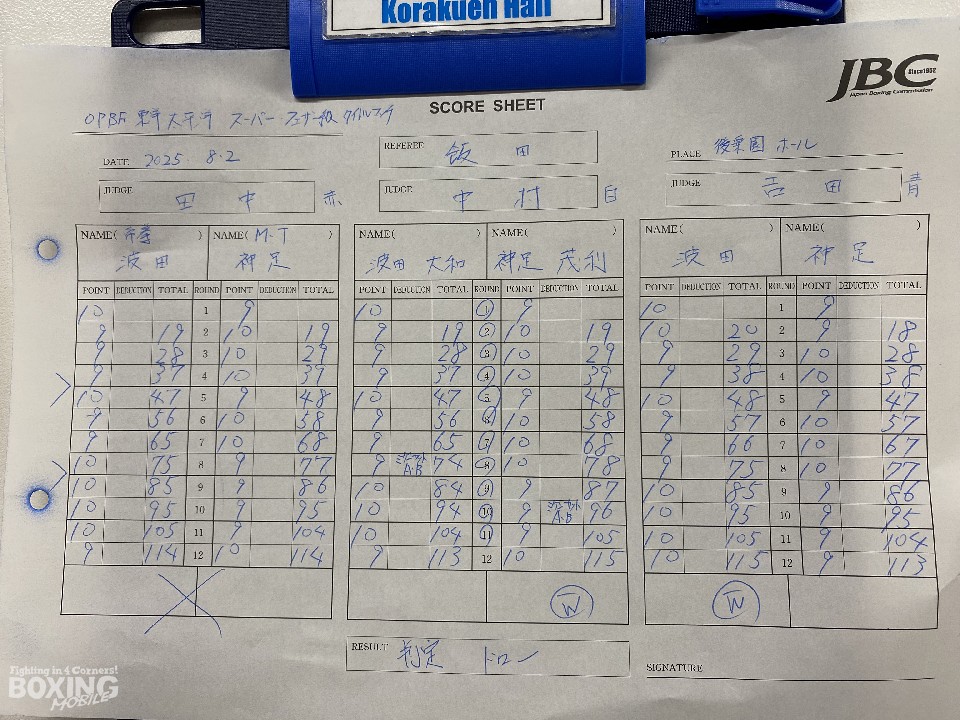 Korakuen Hall
JBC Since1952
Japan Boxing Commission
SCORE SHEET
OPBF 東洋太平洋 スーパー・フェザー級 タイトルマッチ
DATE 2025 8.2
REFEREE 飯田
PLACE 後楽園ホール
JUDGE 田中 赤
JUDGE 中村 白
JUDGE 吉田 青
NAME( 帝拳 ) NAME( M.T ) NAME( ) NAME( ) NAME( ) NAME( )
波田 神足 波田 大和 神足 茂利 波田 神足
POINT DEDUCTION TOTAL ROUND POINT DEDUCTION TOTAL POINT DEDUCTION TOTAL ROUND POINT DEDUCTION TOTAL POINT DEDUCTION TOTAL ROUND POINT DEDUCTION TOTAL
10 1 9 10 1 9 10 1 9
9 19 2 10 19 9 19 2 10 19 10 20 2 9 18
9 28 3 10 29 9 28 3 10 29 9 29 3 10 28
9 37 4 10 39 9 37 4 10 39 9 38 4 10 38
10 47 5 9 48 10 47 5 9 48 10 48 5 9 47
9 56 6 10 58 9 56 6 10 58 9 57 6 10 57
9 65 7 10 68 9 65 7 10 68 9 66 7 10 67
10 75 8 9 77 9 A.B 74 8 10 78 9 75 8 10 77
10 85 9 9 86 10 84 9 9 87 10 85 9 9 86
10 95 10 9 95 10 94 10 9 A.B 96 10 95 10 9 95
10 105 11 9 104 10 104 11 9 105 10 105 11 9 104
9 114 12 10 114 9 113 12 10 115 10 115 12 9 113
W W
RESULT 判定 ドロー
SIGNATURE
Fighting in 4 Corners!
BOXING
MOBILE